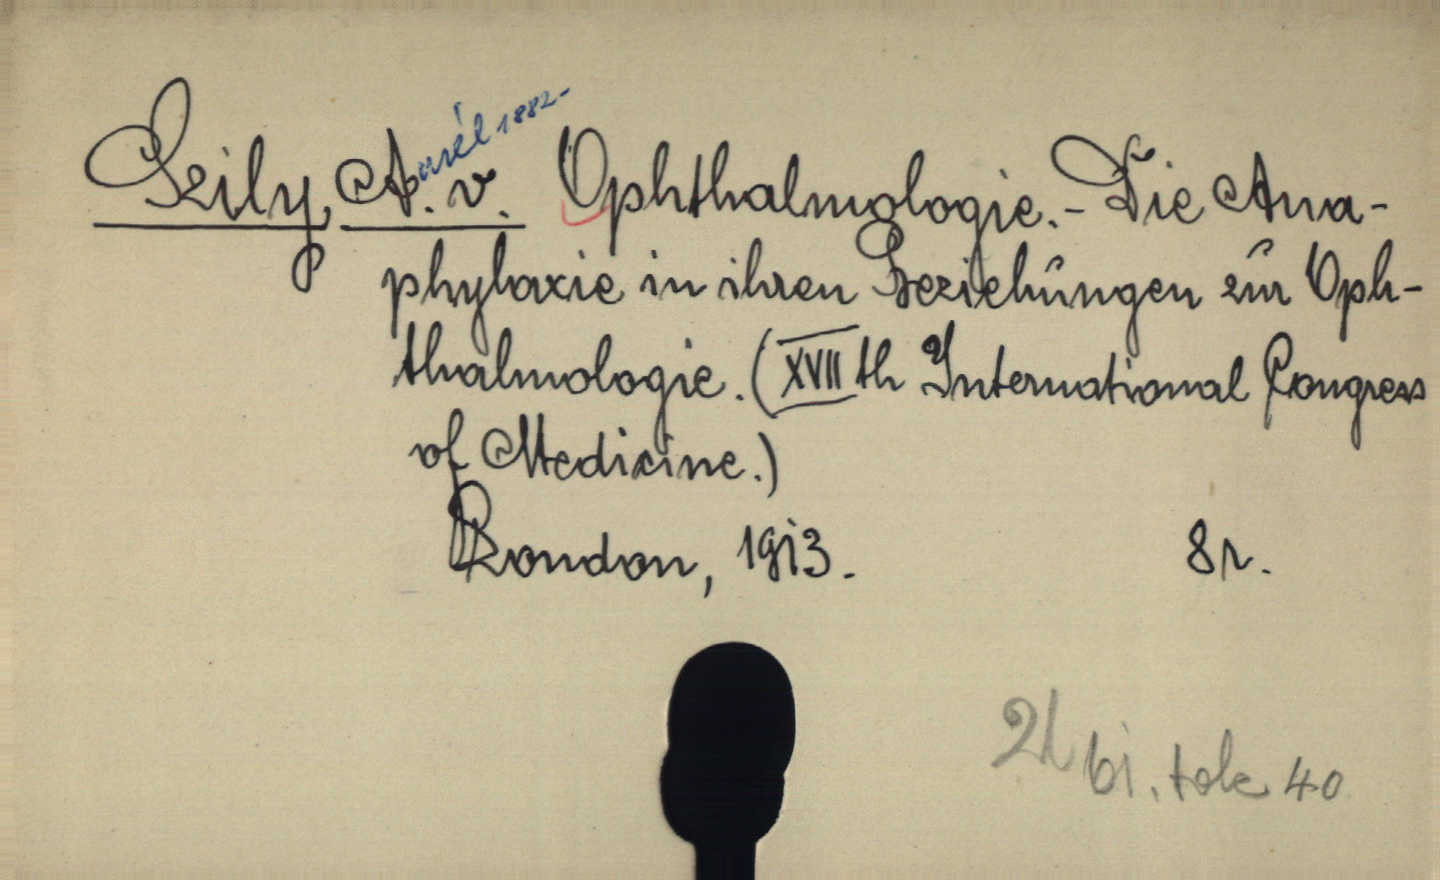 Szily, A.urél 1882- v. Ophthalmologie.- Die Ana-
phylaxie in ihren Beziehungen zur Oph-
thalmologie. (XVII th International Congress
of Medicine.)
London, 1913. 8r.
bi. tok 40